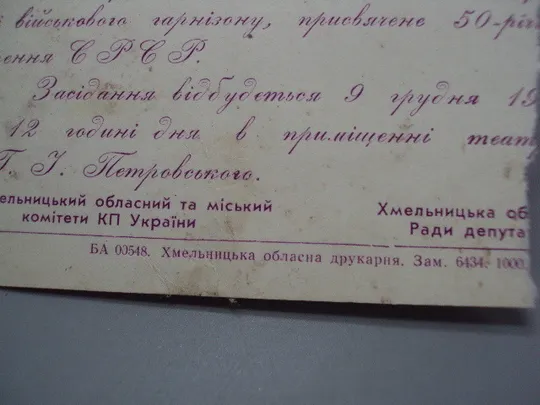 військового гарнізону, присвячене 50-річ
ення СРСР.
Засідання відбудеться 9 грудня 19
12 годині дня в приміщенні теат
Г. І. Петровського.
ельницький обласний та міський
комітети КП України
Хмельницька об
Ради депута
БА 00548. Хмельницька обласна друкарня. Зам. 6434. 1000.